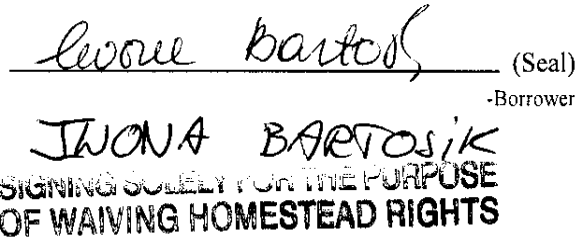 Iwona Bartos (Seal)
-Borrower
IWONA BARTOSIK
SIGNING SOLELY FOR THE PURPOSE
OF WAIVING HOMESTEAD RIGHTS